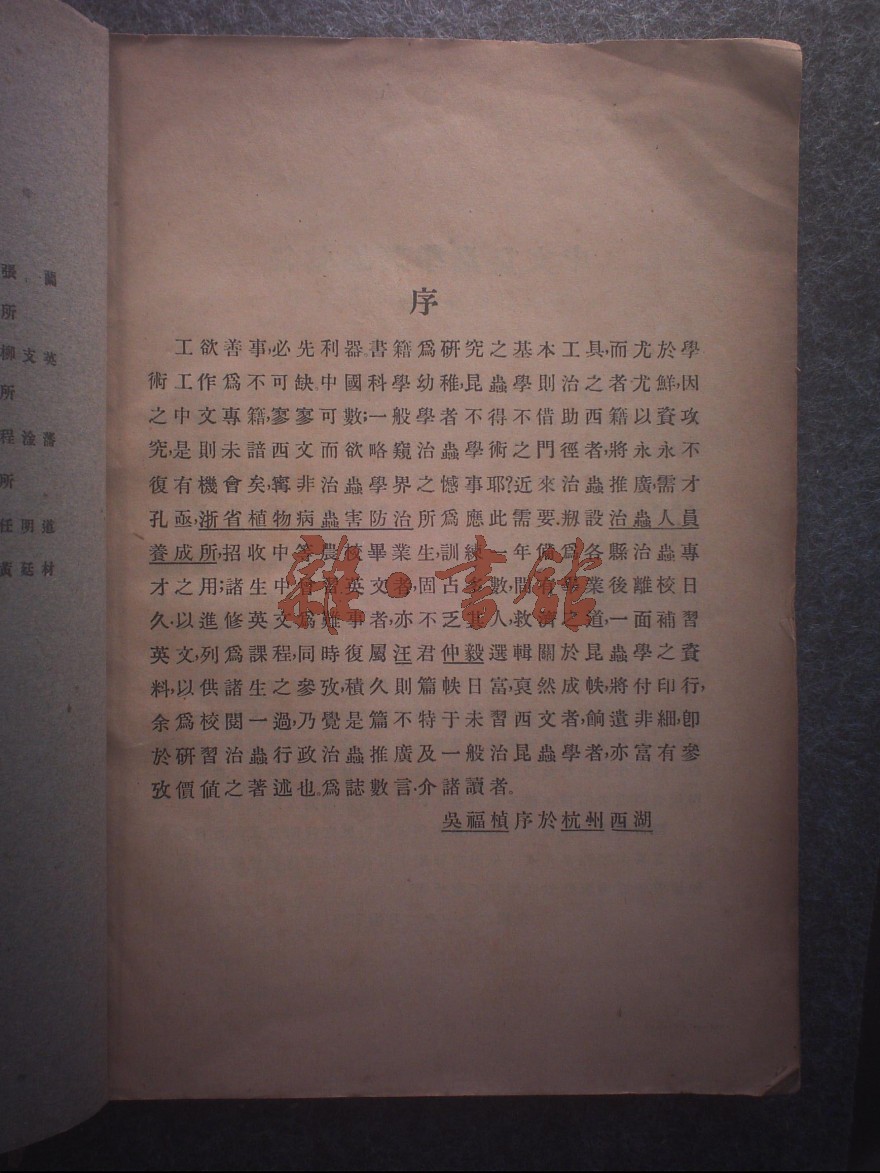 張 蘭
所
柳 支 英
所
程 淦 藩
所
任 明 道
黃 廷 材
序
工欲善事,必先利器書籍爲研究之基本工具,而尤於學
術工作爲不可缺.中國科學幼稚,昆蟲學則治之者尤鮮,因
之中文專籍,寥寥可數;一般學者不得不借助西籍以資攻
究,是則未諳西文而欲略窺治蟲學術之門徑者,將永永不
復有機會矣,寗非治蟲學界之憾事耶?近來治蟲推廣,需才
孔亟,浙省植物病蟲害防治所爲應此需要.剏設治蟲人員
養成所,招收中等農校畢業生,訓練一年備爲各縣治蟲專
才之用;諸生中曾習英文者,固占多數間有畢業後離校日
久.以進修英文爲難事者,亦不乏其人,救濟之道,一面補習
英文,列爲課程,同時復屬汪君仲毅選輯關於昆蟲學之資
料,以供諸生之參攷,積久則篇帙日富,裒然成帙,將付印行,
余爲校閱一過,乃覺是篇不特于未習西文者,餉遺非細,卽
於研習治蟲行政治蟲推廣及一般治昆蟲學者,亦富有參
攷價値之著述也。爲誌數言.介諸讀者。
吳福楨序於杭州西湖
雜·書館